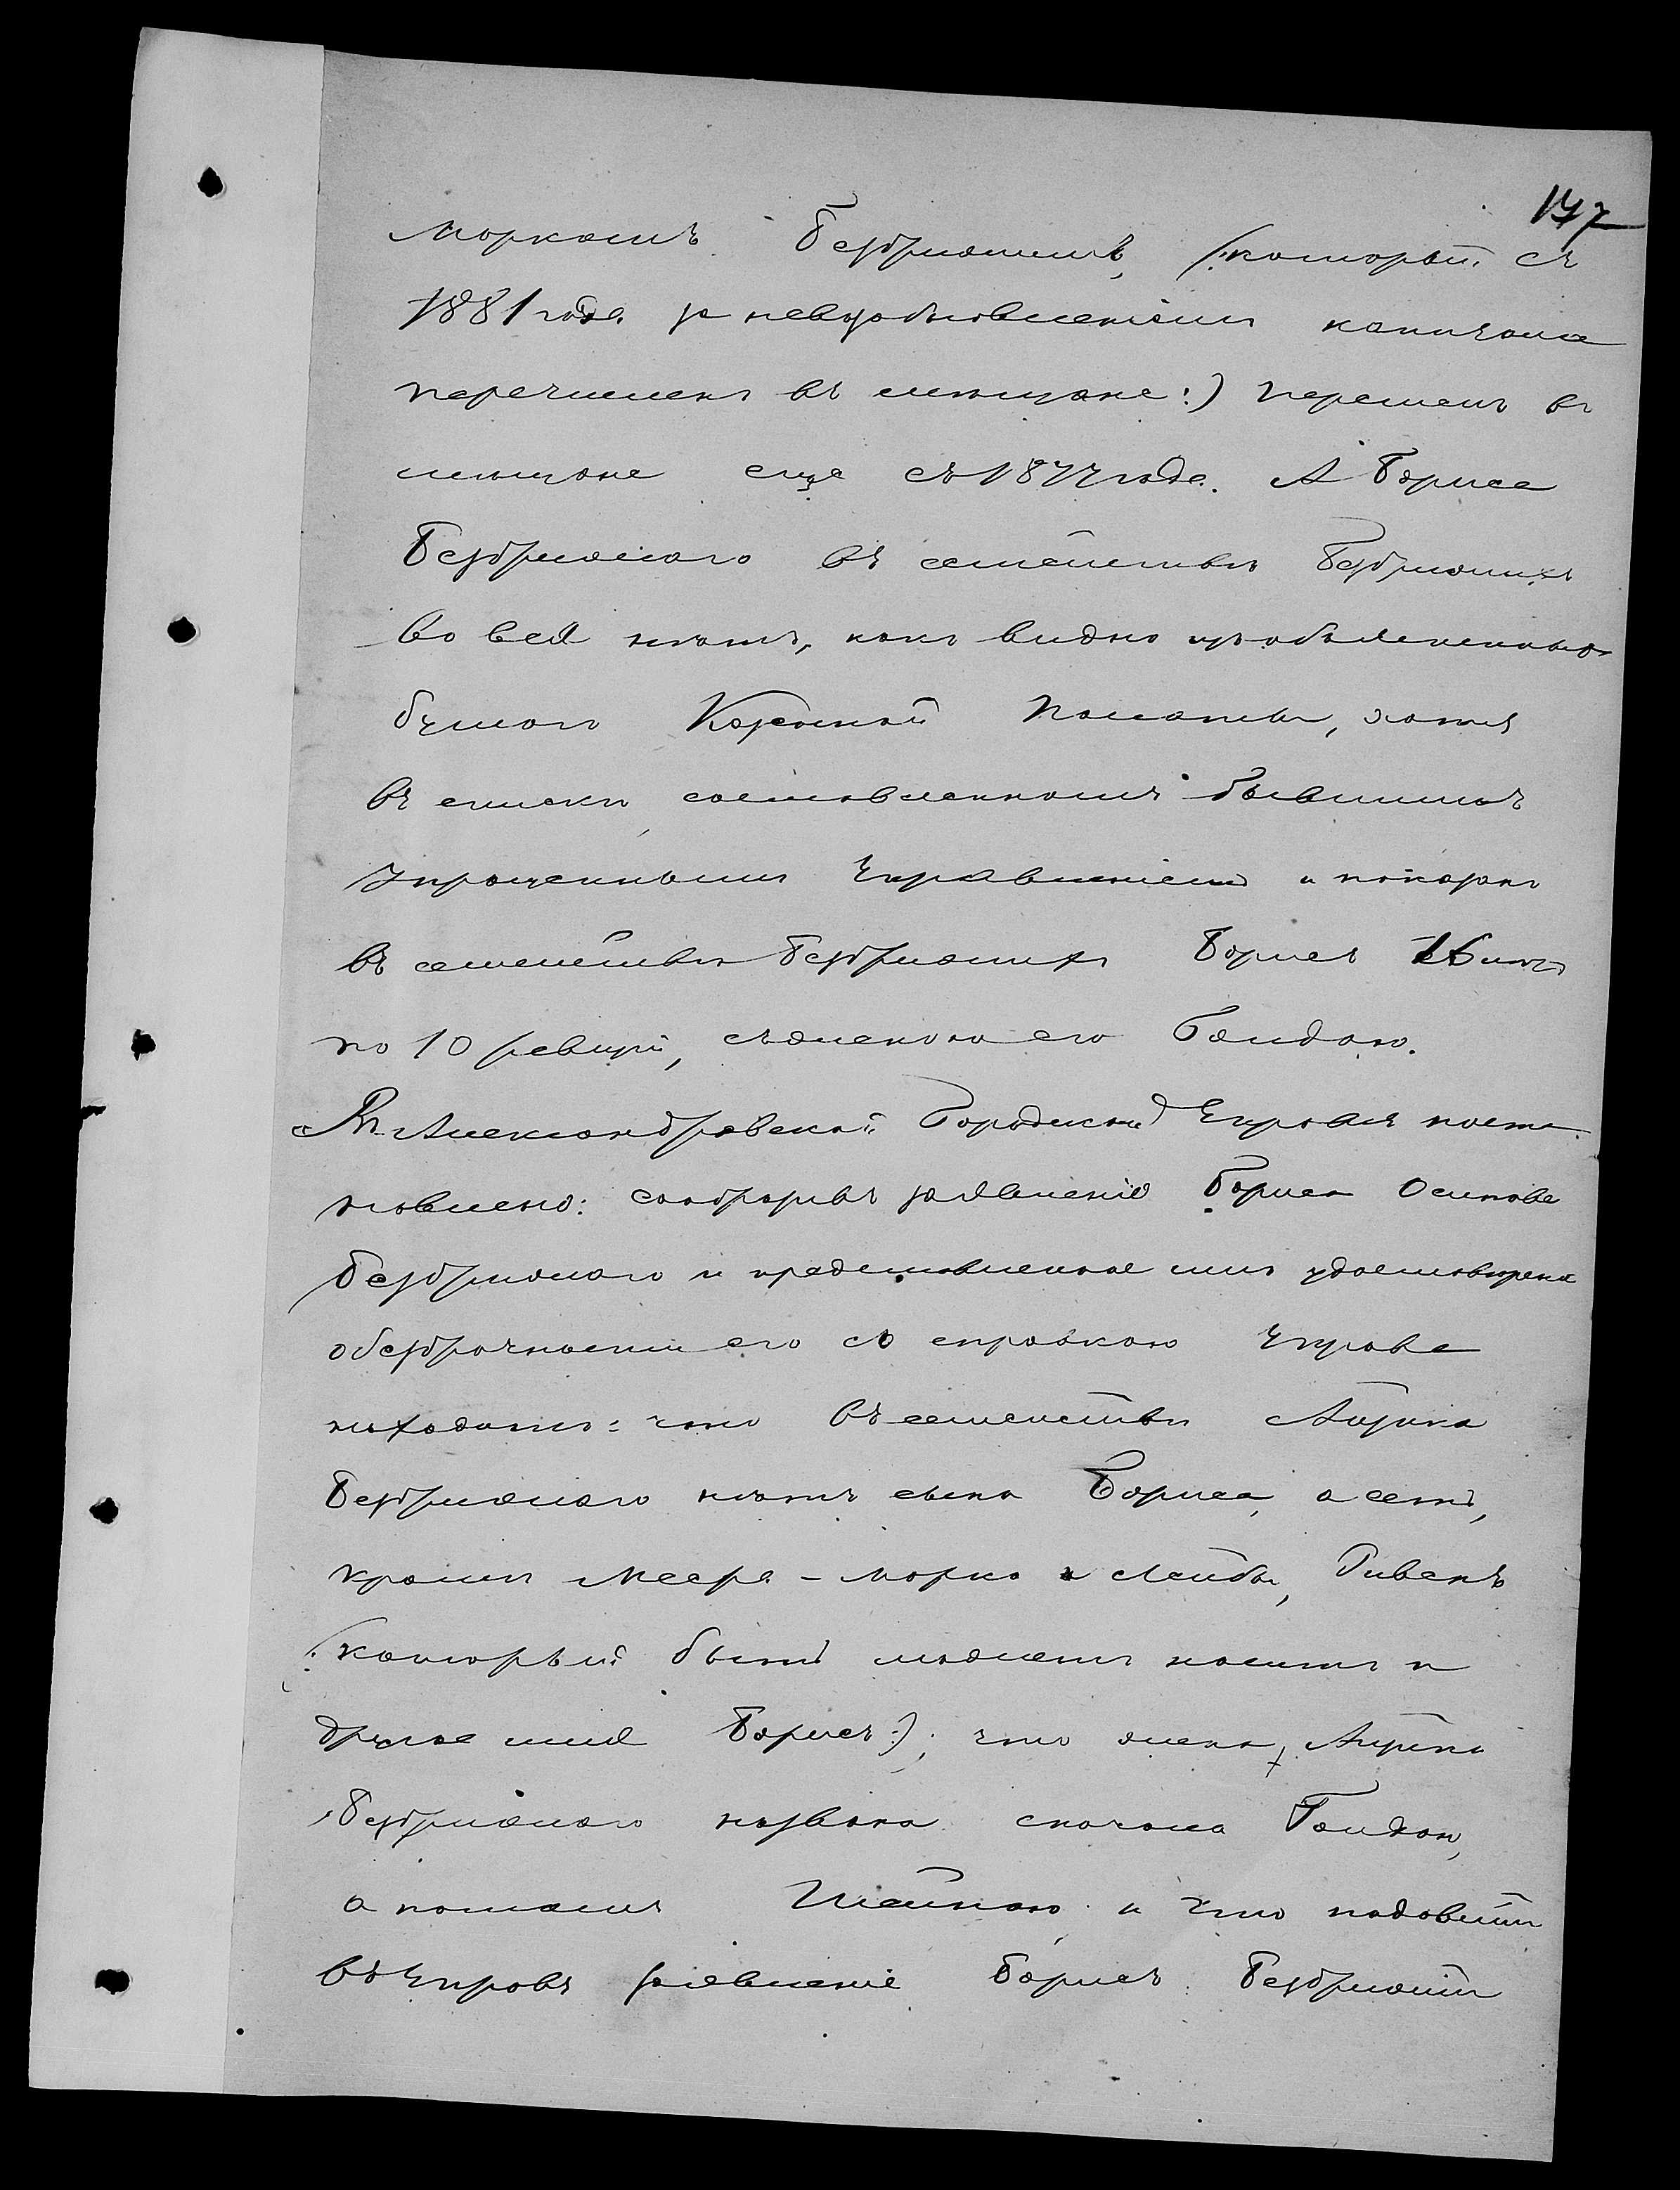 177
Маркомъ Безбрижнымъ, (:который съ
1881 года за невозобновленіемъ капитала
перечисленъ въ мещане:) перешелъ въ
мещане еще съ 1877 года. А Бориса
Безбрижнаго въ семействѣ Безбрижныхъ
во все нѣтъ, какъ видно изъ объявленныхъ
бумагъ Казенной Палаты, хотя
въ списки составленномъ бывшимъ
упрощеннымъ Управленіемъ и показанъ
въ семействѣ Безбрижныхъ Борисъ 16 лѣтъ
по 10 ревизіи, съ женою его Гольдою.
Въ Александровской Городской Управѣ поста
новлено: сообразивъ заявленіе Бориса Осипова
Безбрижнаго и представленное имъ удостовѣреніе
о безбрачности его со справкою Управа
находитъ: что въ семействѣ Айзика
Безбрижнаго нѣтъ сына Бориса, а есть,
кромѣ Меера-Марко и Лейбы, Рувенъ
(:который быть можетъ носитъ и
другое имя Борисъ:); что жена Айзика
Безбрижнаго названа сначала Гольдою,
а потомъ Шейною и что подавшій
въ Управу заявленіе Борисъ Безбрижный